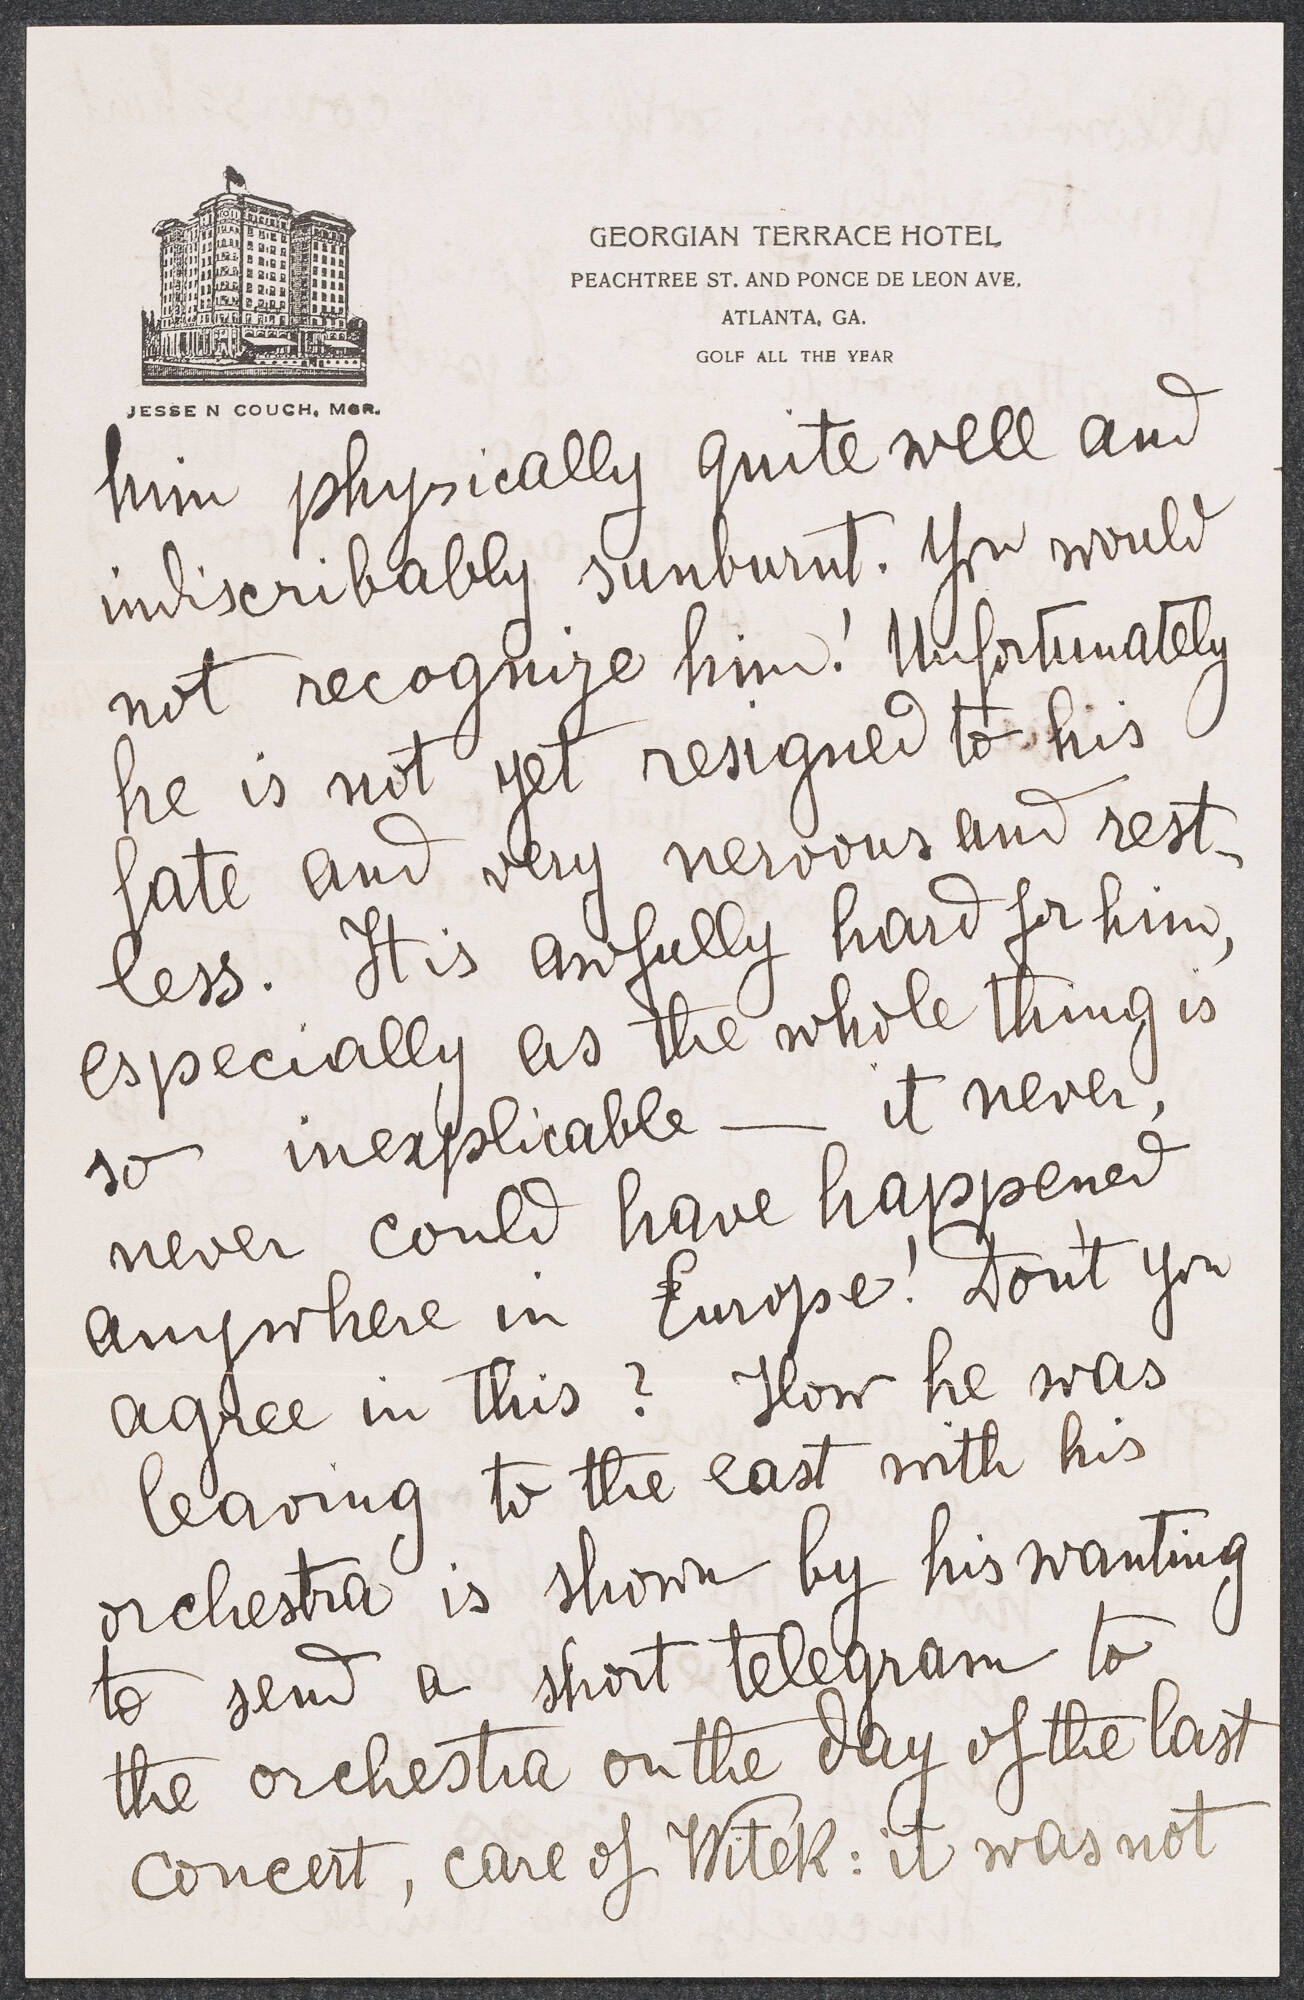 GEORGIAN TERRACE HOTEL
PEACHTREE ST. AND PONCE DE LEON AVE.
ATLANTA, GA.
GOLF ALL THE YEAR
JESSE N COUCH, MGR.
him physically quite well and
indiscribably sunburnt. You would
not recognize him! Unfortunately
he is not yet resigned to his
fate and very nervous and rest-
less. It is awfully hard for him,
especially as the whole thing is
so inexplicable — it never,
never could have happened
anywhere in Europe! Don't you
agree in this? How he was
leaving to the east with his
orchestra is shown by his wanting
to send a short telegram to
the orchestra on the day of the last
concert, care of Witek: it was not